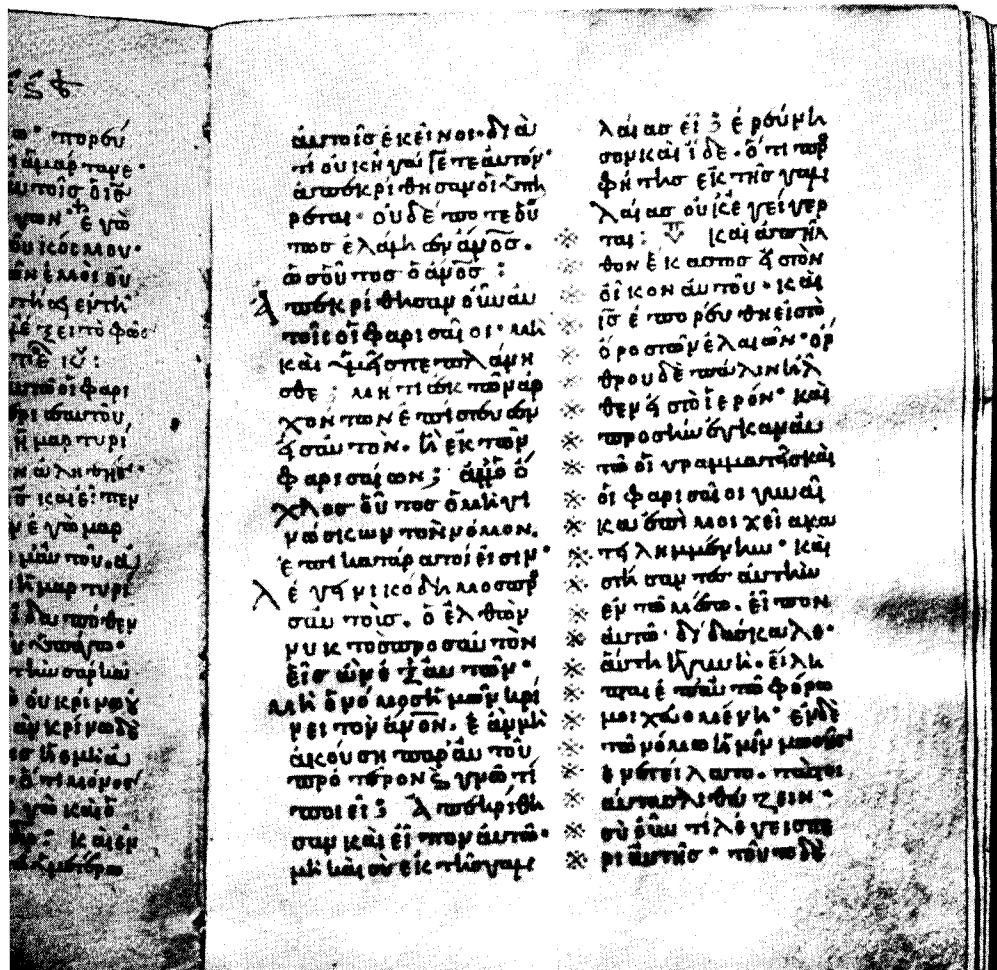 πορεύ
ἁμάρτανε·
αὐτοῖς ὁ ι̅ς̅
γων· ἐγὼ
κόσμου·
ἐμοὶ οὐ
ἐν τῇ
ξει τὸ φῶς
οἱ φαρι
σεαυτοῦ
ἡ μαρτυρί
καὶ εἶπεν
ἐγὼ μαρ
ἡ μαρτυρί
πόθεν
τὴν σάρκα
οὐ κρίνω
κρίνω δὲ
αὐτοῖς ἐκεῖνοι· διὰ
τί οὐκ ἠγάγετε αὐτόν·
ἀπεκρίθησαν οἱ ὑπη
ρέται· οὐδέποτε οὕ
τως ἐλάλησεν ἄνος̅·
ὡς οὗτος ὁ ἄνος̅:
Ἀπεκρίθησαν οὖν αὐ
τοῖς οἱ φαρισαῖοι· μὴ
καὶ ὑμεῖς πεπλάνη
σθε; μή τις ἐκ τῶν ἀρ
χόντων ἐπίστευσεν
εἰς αὐτόν. ἢ ἐκ τῶν
φαρισαίων; ἀλλ' ὁ ὁ
χλος οὗτος ὁ μὴ γι
νώσκων τὸν νόμον.
ἐπικατάρατοί εἰσιν·
λέγει νικόδημος πρ
αὐτούς. ὁ ἐλθὼν
νυκτὸς πρὸς αὐτὸν
εἷς ὢν ἐξ αὐτῶν·
μὴ ὁ νόμος ἡμῶν κρί
νει τὸν ἄνον̅. ἐὰν μὴ
ἀκούσῃ παρ' αὐτοῦ
πρότερον ϗ γνῷ τί
ποιεῖ; Ἀπεκρίθη
σαν καὶ εἶπον αὐτῷ·
μὴ καὶ σὺ ἐκ τῆς γαλι
λαίας εἶ; ἐρεύνη
σον καὶ ἴδε. ὅτι προ
φήτης ἐκ τῆς γαλι
λαίας οὐκ ἐγείγερ
※ ται: καὶ ἀπῆλ
※ θον ἕκαστος εἰς τὸν
※ οἶκον αὐτοῦ· καὶ
※ ι̅ς̅ ἐπορεύθη εἰς τὸ
※ ὄρος τῶν ἐλαιῶν· ὄρ
※ θρου δὲ πάλιν ἦλ
※ θεν εἰς τὸ ἱερόν· καὶ
※ προσήνεγκαν αὐ
※ τῷ οἱ γραμματεῖς καὶ
※ οἱ φαρισαῖοι γυναῖ
※ κα ἐπὶ μοιχείᾳ κα
※ τειλημμένην· καὶ
※ στήσαντες αὐτὴν
※ ἐν τῷ μέσῳ. εἶπον
※ αὐτῷ· διδάσκαλε·
※ αὕτη ἡ γυνὴ. εἴλη
※ πται ἐπαυτοφόρω
※ μοιχευομένη· ἐν δὲ
※ τῷ νόμῳ ἡμῖν μωσῆς
※ ἐνετείλατο. τὰς τοι
※ αύτας λιθάζειν·
※ σὺ οὖν τί λέγεις πε
※ ρὶ αὐτῆς· τοῦτο δὲ